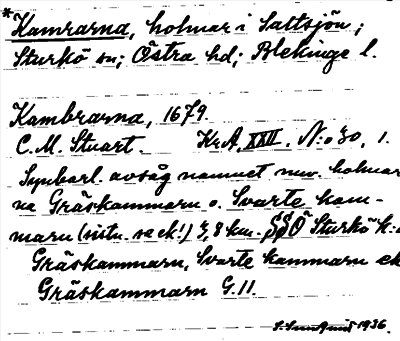 *Kamrarna, holmar i Saltsjön;
Sturkö sn; Östra hd; Blekinge l.
Kambrarna, 1679.
C. M. Stuart. KrA, XXII. N:o 30, 1.
Synbarl. avsåg namnet nuv. holmar
na Gräskammarn o. Svarte kam-
marn (situ. se ek!) 3,8 km. SSÖ Sturkö k:a
Gräskammarn, Svarte kammarn ek
Gräskammarn G. 11
1936.